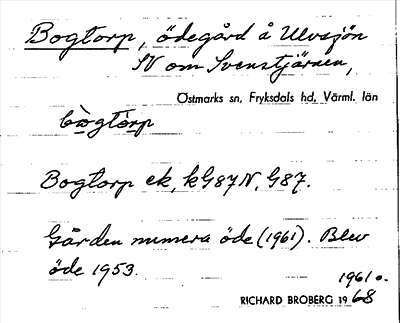 Bogtorp, ödegård å Ulvsjön
SV om Svenstjärnen,
Östmarks sn, Fryksdals hd, Värml. län
bògtòrp
Bogtorp ek, kG87N, G87.
Gården numera öde (1961). Blev
öde 1953.
1961 o.
RICHARD BROBERG 1968